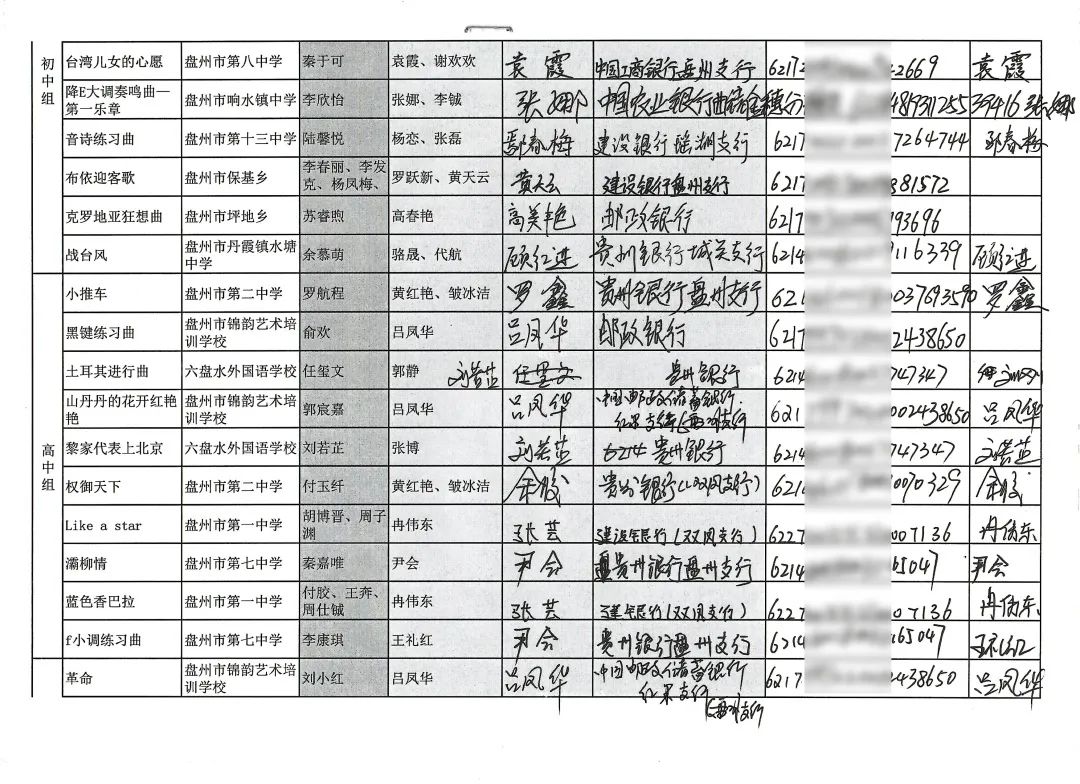 初中组
台湾儿女的心愿 盘州市第八中学 秦于可 袁霞、谢欢欢 袁霞 中国工商银行盘州支行 6217 2669 袁霞
降E大调奏鸣曲—
第一乐章 盘州市响水镇中学 李欣怡 张娜、李铖 张娜 中国农业银行 张娜
音诗练习曲 盘州市第十三中学 陆馨悦 杨恋、张磊 鄢春梅 建设银行 支行 6217 7264744
布依迎客歌 盘州市保基乡 李春丽、李发
克、杨凤梅、 罗跃新、黄天云 黄天云 建设银行盘州支行 6217 381572
克罗地亚狂想曲 盘州市坪地乡 苏睿煦 高春艳 高美艳 邮政银行 6217 93696
战台风 盘州市丹霞镇水塘
中学 余慕萌 骆晟、代航 顾红进 贵州银行城关支行 6214 116339 顾红进
高中组
小推车 盘州市第二中学 罗航程 黄红艳、邹冰洁 罗鑫 贵州银行盘州支行 621 罗鑫
黑键练习曲 盘州市锦韵艺术培
训学校 俞欢 吕凤华 吕凤华 邮政银行 6217 2438650
土耳其进行曲 六盘水外国语学校 任玺文 郭静 刘若芷 贵州银行 6214 747347
山丹丹的花开红艳
艳 盘州市锦韵艺术培
训学校 郭宸嘉 吕凤华 吕凤华 中国邮政储蓄银行
红果支行 621 002438650 吕凤华
黎家代表上北京 六盘水外国语学校 刘若芷 张博 刘若芷 6214 贵州银行 6214 747347 刘若芷
权御天下 盘州市第二中学 付玉纤 黄红艳、邹冰洁 贵州银行(双凤支行) 621 0070329
Like a star 盘州市第一中学 胡博晋、周子
渊 冉伟东 张芸 建设银行(双凤支行) 6227 007136 冉伟东
灞柳情 盘州市第七中学 秦嘉唯 尹会 尹会 贵州银行盘州支行 6214 65047 尹会
蓝色香巴拉 盘州市第一中学 付胶、王奔、
周仕铖 冉伟东 张芸 (双凤支行) 6227 07136 冉伟东
f小调练习曲 盘州市第七中学 李康琪 王礼红 尹会 贵州银行盘州支行 6214 65047
革命 盘州市锦韵艺术培
训学校 刘小红 吕凤华 吕凤华 中国邮政储蓄银行
红果支行 6217 2438650 吕凤华